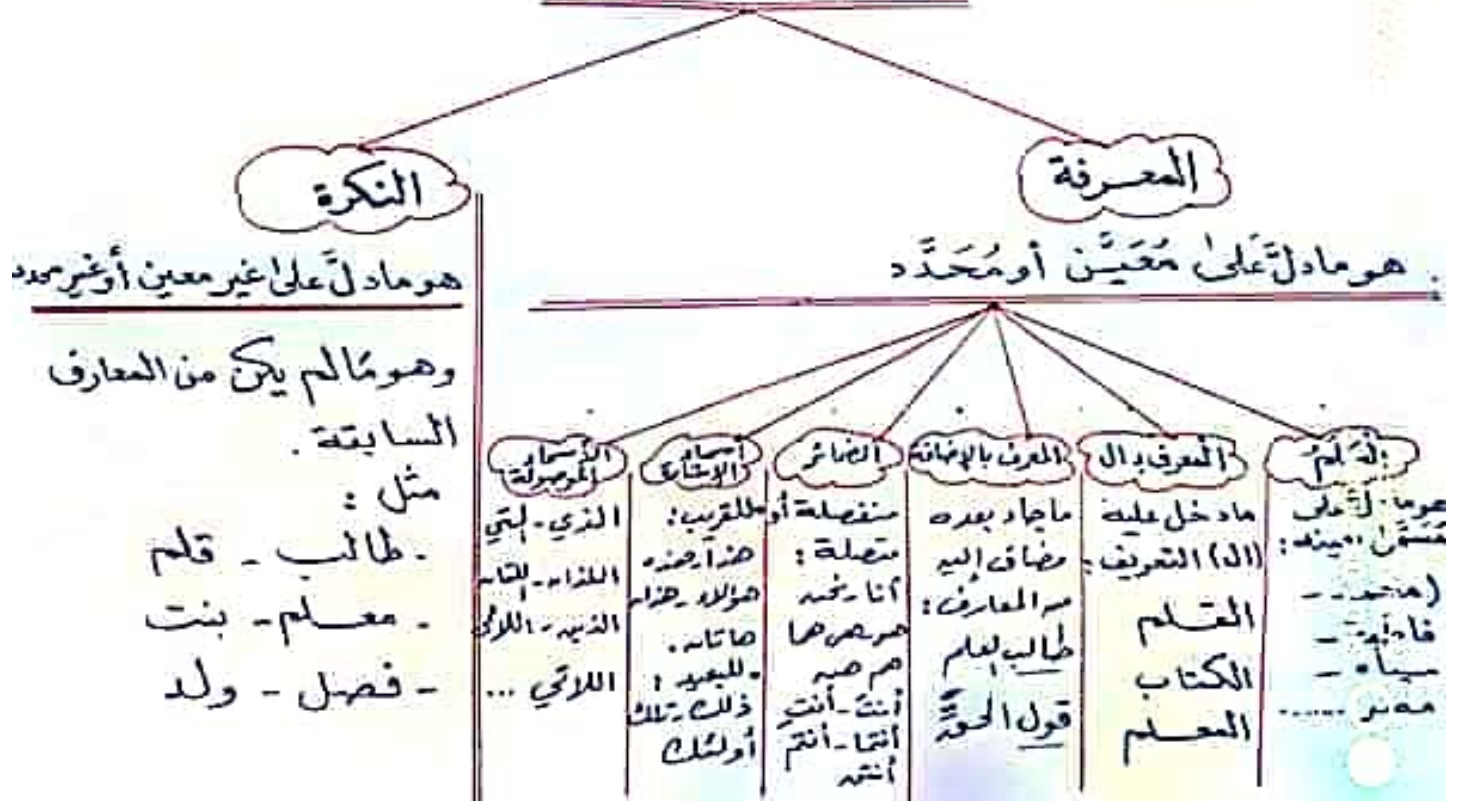 المعرفة
هو ما دلَّ عَلىٰ مُعَيَّن أو مُحَدَّد
العَلَمُ
هو ما دلَّ على
مُسَمَّىً بعينه:
فاطمة -
المعرف بـ ال
ما دخل عليه
(ال) التعريف:
القلم
الكتاب
المعلم
المعرف بالإضافة
ما جاء بعده
مضاف إليه
من المعارف:
طالب العلم
قول الحقِّ
الضمائر
منفصلة أو
متصلة:
أنا - نحن
هو - هي - هما
هم - هن
أنتَ - أنتِ
أنتما - أنتم
أنتن
أسماء
الإشارة
للقريب:
هذا - هذه
هؤلاء - هذان
هاتان.
للبعيد:
ذلك - تلك
أولئك
الأسماء
الموصولة
الذي - التي
اللذان - اللتان
الذين - اللائي
اللاتي ...
النكرة
هو ما دلَّ علىٰ غير معين أو غير محدد
وهو مَا لم يكن من المعارف
السابقة.
مثل:
- طالب - قلم
- معلم - بنت
- فصل - ولد